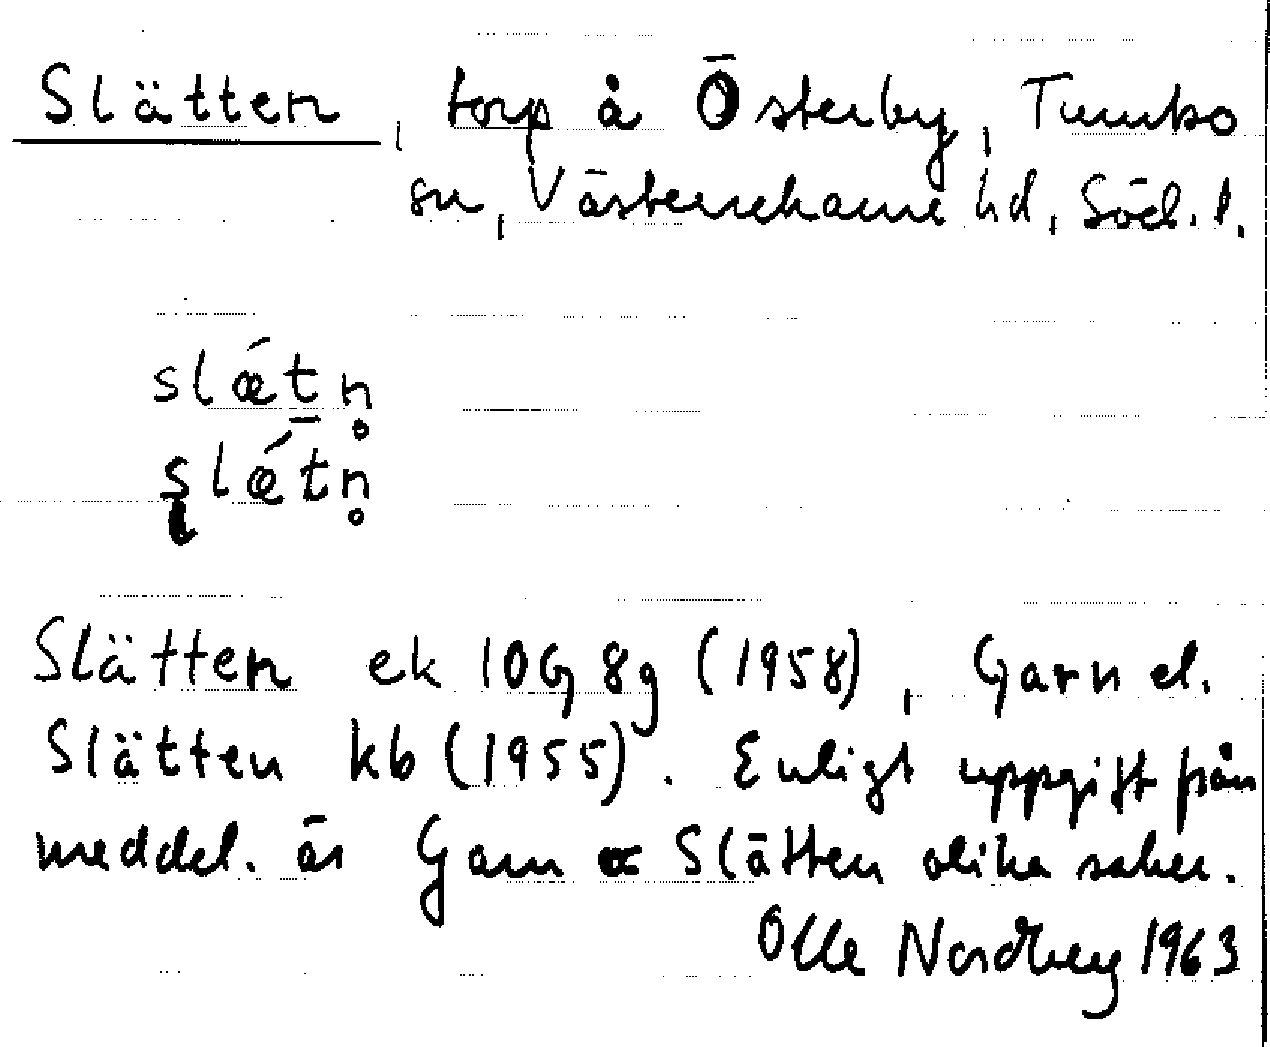 Slätten, torp å Österby, Tumbo
sn, Västerrekarne hd, Söd. l.
slǽtn̥
s̨lǽt̄n̥
Slätten ek 10G 8g (1958), Garn el.
Slätten kb (1955). Enligt uppgift från
meddel. är Garn o Slätten olika saker.
Olle Nordberg 1963